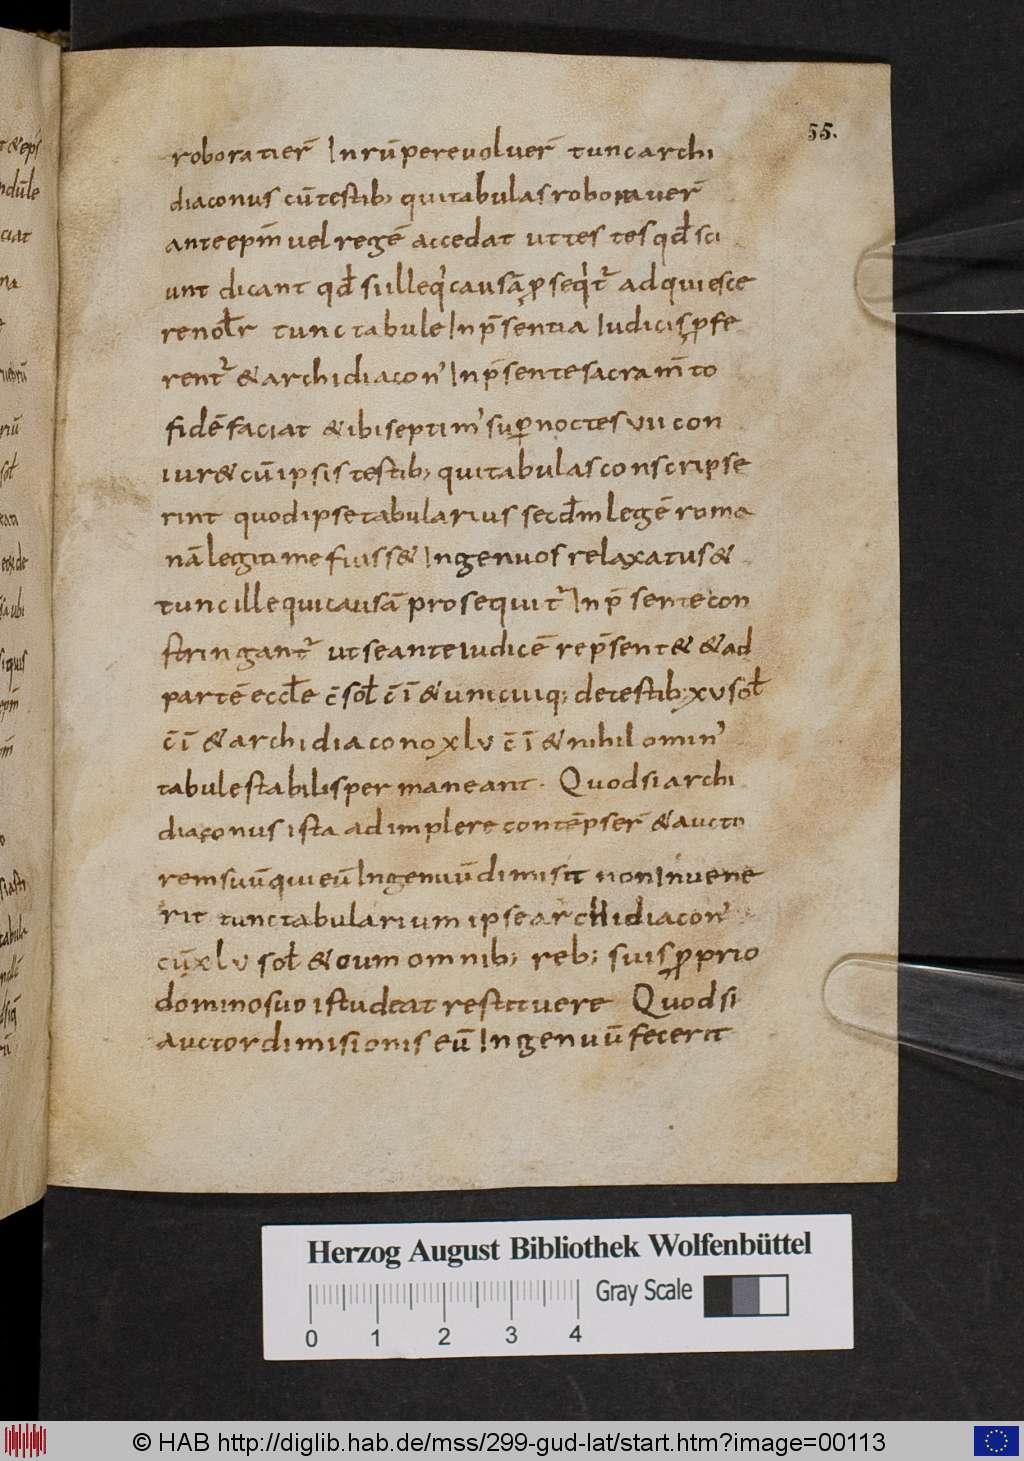 55.
roboratier̄ Inrū perevoluer̄ tunc archi
diaconus cū testib; qui tabulas roboraver̄
ante epm̄ vel regē accedat ut testes qđ sci
unt dicant qđ si ille qi causā ꝓseqit̄ adquiesce
re nolt̄ tunc tabule In p̄sentia Iudicis ꝓfe
rent̄ & archidiacon' In p̄sente sacram̄to
fidē faciat & ibi septim' super noctes vii con
iur& cū ipsis testib; qui tabulas conscripse
rint quod ipse tabularius secđm legē roma
nā legitime fuiss& Ingenuos relaxatus &
tunc ille qui causā prosequit̄ In p̄sente con
stringant̄ ut se ante iudicē rep̄sent& & ad
partē eccłe c̄ soł c̄ī & unicuiq; de testib; xv soł
c̄ī & archidiacono xlv c̄ī & nihilomin'
tabule stabilis permaneant. Quod si archi
diaconus ista adimplere contēpser̄ & aucto
rem suū qui eū Ingenuū dimisit non Invene
rit tunc tabularium ipse archidiacon'
cū xlv soł & cum omnib; reb; suis ꝓprio
domino suo istudeat restituere Quod si
auctor dimisionis eū Ingenuū fecerit
Herzog August Bibliothek Wolfenbüttel
Gray Scale
0 1 2 3 4
© HAB http://diglib.hab.de/mss/299-gud-lat/start.htm?image=00113